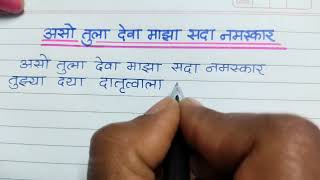 असो तुला देवा माझा सदा नमस्कार
असो तुला देवा माझा सदा नमस्कार
तुझ्या दया दातृत्वाला